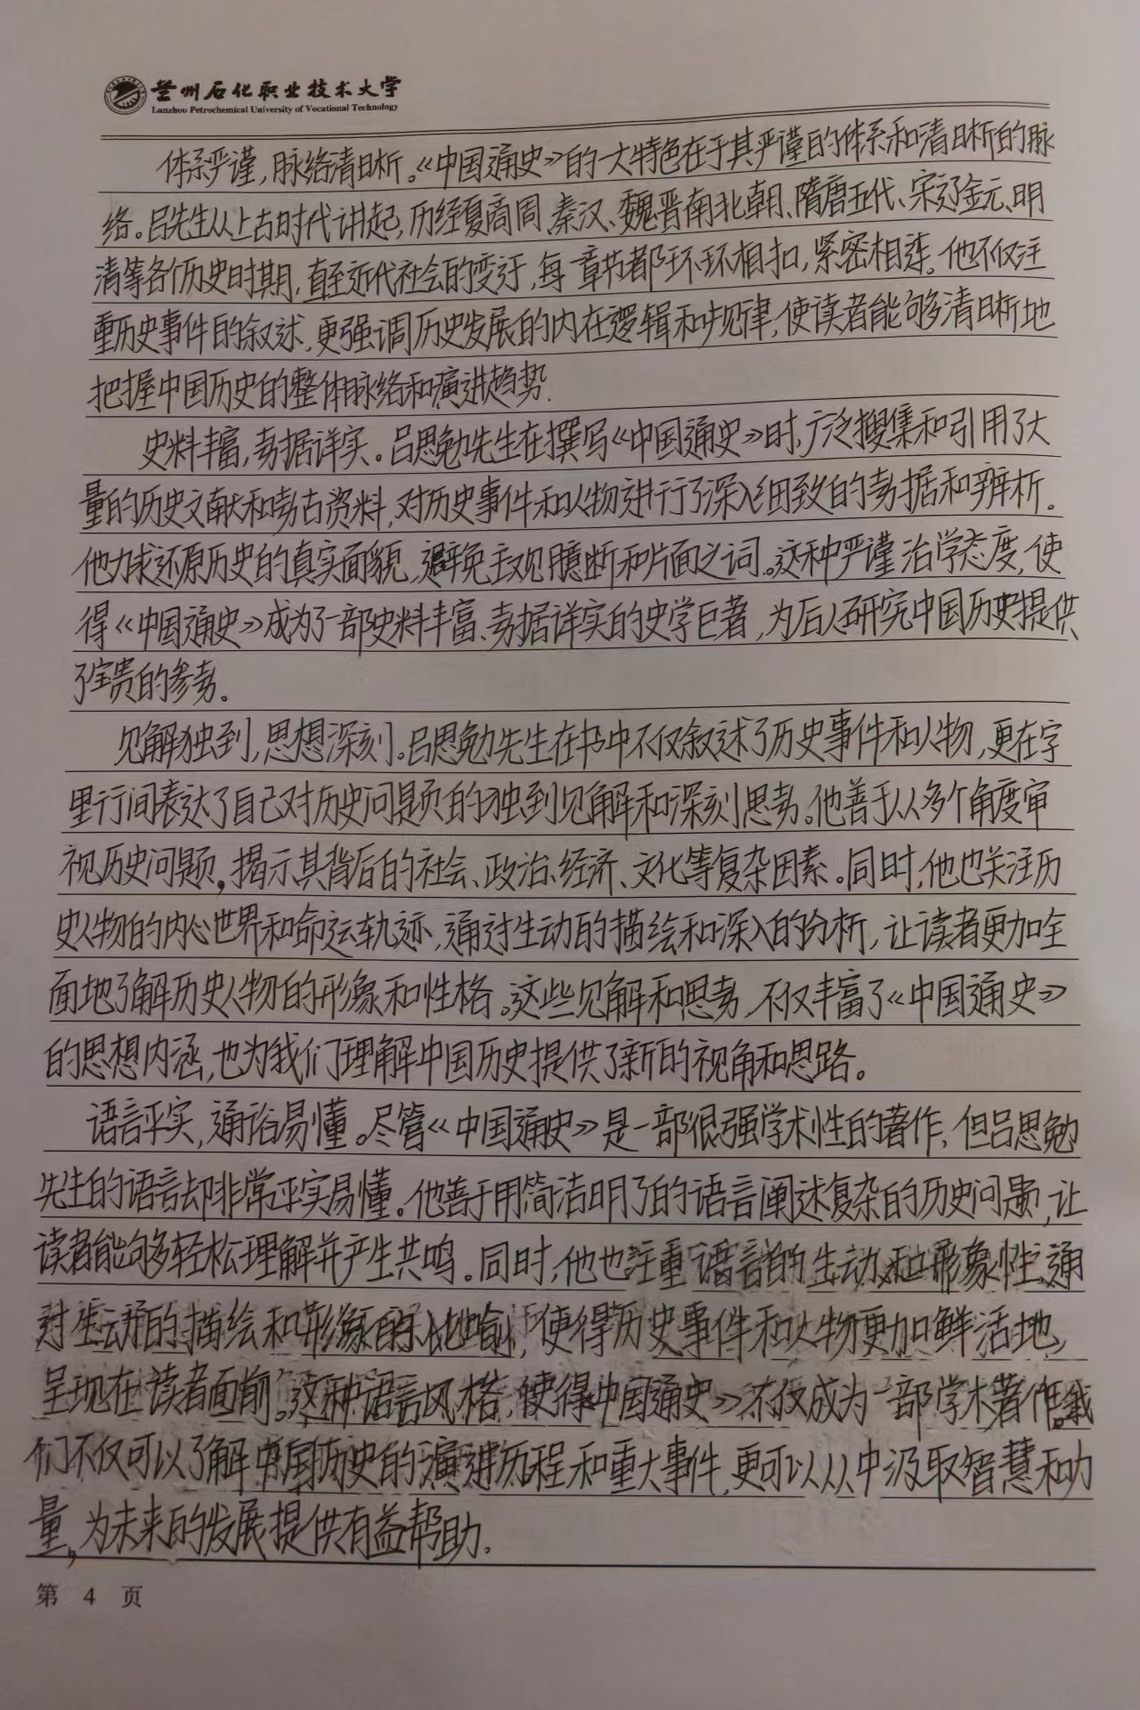 兰州石化职业技术大学
Lanzhou Petrochemical University of Vocational Technology
体系严谨,脉络清晰。《中国通史》的一大特色在于其严谨的体系和清晰的脉
络。吕先生从上古时代讲起,历经夏商周、秦汉、魏晋南北朝、隋唐五代、宋辽金元、明
清等各个历史时期,直至近代社会的变迁,每一章节都环环相扣,紧密相连。他不仅注
重历史事件的叙述,更强调历史发展的内在逻辑和规律,使读者能够清晰地
把握中国历史的整体脉络和演进趋势.
史料丰富,考据详实。吕思勉先生在撰写《中国通史》时,广泛搜集和引用了大
量的历史文献和考古资料,对历史事件和人物进行了深入细致的考据和辨析。
他力求还原历史的真实面貌,避免主观臆断和片面之词。这种严谨治学态度,使
得《中国通史》成为了一部史料丰富、考据详实的史学巨著,为后人研究中国历史提供
了宝贵的参考。
见解独到,思想深刻。吕思勉先生在书中不仅叙述了历史事件和人物,更在字
里行间表达了自己对历史问题的独到见解和深刻思考。他善于从多个角度审
视历史问题,揭示其背后的社会、政治、经济、文化等复杂因素。同时,他也关注历
史人物的内心世界和命运轨迹,通过生动的描绘和深入的分析,让读者更加全
面地了解历史人物的形象和性格。这些见解和思考,不仅丰富了《中国通史》
的思想内涵,也为我们理解中国历史提供了新的视角和思路。
语言平实,通俗易懂。尽管《中国通史》是一部很强学术性的著作,但吕思勉
先生的语言却非常平实易懂。他善于用简洁明了的语言阐述复杂的历史问题,让
读者能够轻松理解并产生共鸣。同时,他也注重语言的生动和形象性,通
过生动的描绘和形象的比喻,使得历史事件和人物更加鲜活地,
呈现在读者面前。这种语言风格,使得中国通史》不仅成为一部学术著作。我
们不仅可以了解中国历史的演进历程和重大事件,更可以从中汲取智慧和力
量,为未来的发展提供有益帮助.
第 4 页